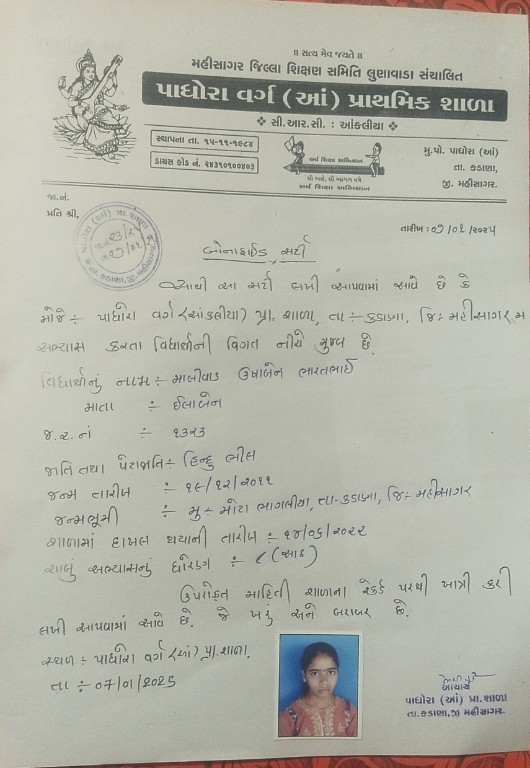 ॥ સત્ય મેવ જયતે ॥
મહીસાગર જિલ્લા શિક્ષણ સમિતિ લુણાવાડા સંચાલિત
પાધોરા વર્ગ (આં) પ્રાથમિક શાળા
❖ સી.આર.સી. : આંકલીયા ❖
સ્થાપના તા. ૧૫-૧૧-૧૯૮૪
ડાયસ કોડ નં. ૨૪૩૧૦૧૦૦૪૦૩
સર્વ શિક્ષા અભિયાન
સૌ ભણે, સૌ આગળ વધે
સર્વ શિક્ષા અભિયાન
મુ.પો. પાધોરા (આં)
તા. કડાણા,
જી. મહીસાગર.
જા.નં.
પ્રતિ શ્રી,
તારીખ : ૦૭/૦૧/૨૦૨૫
બોનાફાઈડ સર્ટી
આથી આ સર્ટી લખી આપવામાં આવે છે કે
મોજે ÷ પાધોરા વર્ગ (આંકલીયા) પ્રા. શાળા, તા ÷ કડાણા, જિ ÷ મહીસાગર મ
અભ્યાસ કરતા વિદ્યાર્થીની વિગત નીચે મુજબ છે.
વિદ્યાર્થીનું નામ ÷ માલીવાડ ઉષાબેન ભારતભાઈ
માતા ÷ ઈલાબેન
જ.ર.નં ÷ ૧૩૨૩
જાતિ તથા પેટાજાતિ ÷ હિન્દુ ભીલ
જન્મ તારીખ ÷ ૧૯/૧૨/૨૦૧૧
જન્મભૂમી ÷ મુ ÷ મોટા ભાગલીયા, તા-કડાણા, જિ ÷ મહીસાગર
શાળામાં દાખલ થયાની તારીખ ÷ ૧૪/૦૬/૨૦૨૨
ચાલું અભ્યાસનું ધોરણ ÷ ૮ (આઠ)
ઉપરોક્ત માહિતી શાળાના રેકર્ડ પરથી ખાત્રી કરી
લખી આપવામાં આવે છે. જે ખરું અને બરાબર છે.
સ્થળ ÷ પાધોરા વર્ગ (આં) પ્રા. શાળા.
તા ÷ ૦૭/૦૧/૨૦૨૫
આચાર્ય
પાધોરા (આં) પ્રા.શાળા
તા.કડાણા,જી મહીસાગર.